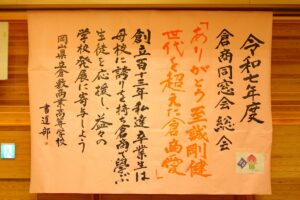 令和七年度
倉商同窓会総会
「ありがとう至誠剛健
世代を超えた倉商愛」
創立百十三年私達卒業生は
母校に誇りを持ち倉商で繋がる
生徒を応援し、益々の
学校発展に寄与しよう
岡山県立倉敷商業高等学校
書道部